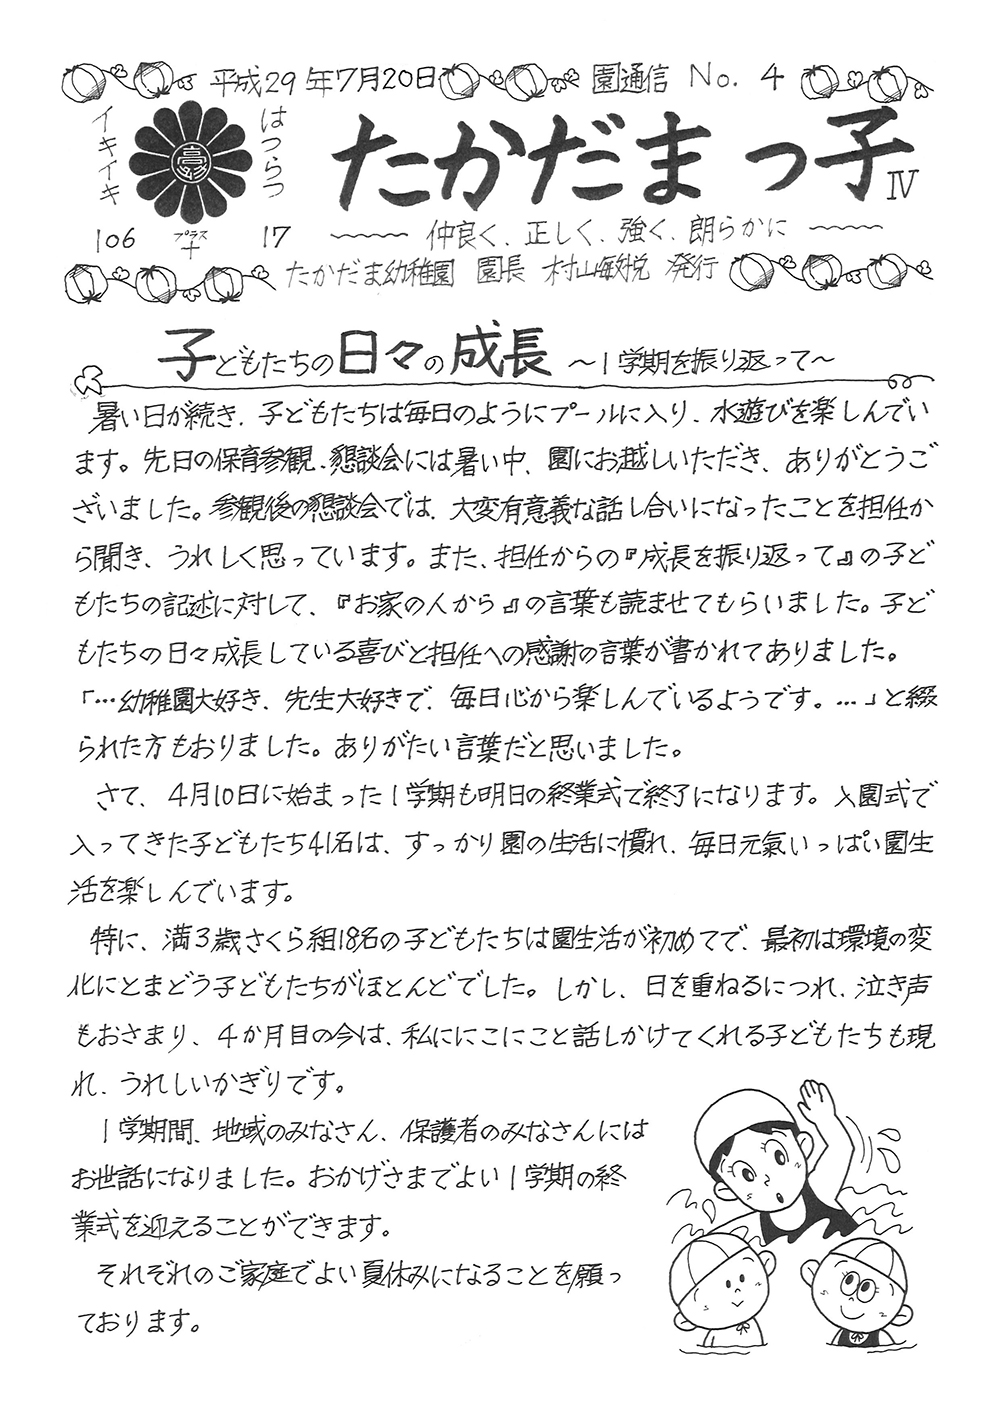 平成29年7月20日 園通信 No. 4
イキイキ はつらつ
たかだまっ子 Ⅳ
106 プラス + 17
仲良く、正しく、強く、朗らかに
たかだま幼稚園 園長 村山敏悦 発行
子どもたちの日々の成長 ～1学期を振り返って～
暑い日が続き、子どもたちは毎日のようにプールに入り、水遊びを楽しんでい
ます。先日の保育参観、懇談会には暑い中、園にお越しいただき、ありがとうご
ざいました。参観後の懇談会では、大変有意義な話し合いになったことを担任か
ら聞き、うれしく思っています。また、担任からの『成長を振り返って』の子ど
もたちの記述に対して、『お家の人から』の言葉も読ませてもらいました。子ど
もたちの日々成長している喜びと担任への感謝の言葉が書かれてありました。
「…幼稚園大好き、先生大好きで、毎日心から楽しんでいるようです。…」と綴
られた方もおりました。ありがたい言葉だと思いました。
さて、4月10日に始まった1学期も明日の終業式で終了になります。入園式で
入ってきた子どもたち41名は、すっかり園の生活に慣れ、毎日元氣いっぱい園生
活を楽しんでいます。
特に、満3歳さくら組18名の子どもたちは園生活が初めてで、最初は環境の変
化にとまどう子どもたちがほとんどでした。しかし、日を重ねるにつれ、泣き声
もおさまり、4か月目の今は、私ににこにこと話しかけてくれる子どもたちも現
れ、うれしいかぎりです。
1学期間、地域のみなさん、保護者のみなさんには
お世話になりました。おかげさまでよい1学期の終
業式を迎えることができます。
それぞれのご家庭でよい夏休みになることを願っ
ております。